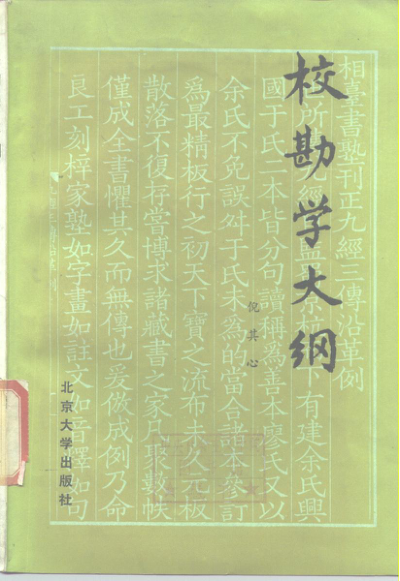 校勘学大纲
倪其心
北京大学出版社
相臺書塾刊正九經三傳沿革例
下有建余氏興
國于氏二本皆分句讀稱爲善本廖氏又以
余氏不免誤舛于氏未爲的當合諸本參訂
爲最精板行之初天下寶之流布未久元板
散落不復存嘗博求諸藏書之家凡聚數帙
僅成全書懼其久而無傳也爰倣成例乃命
良工刻梓家塾如字畫如註文如音釋如句